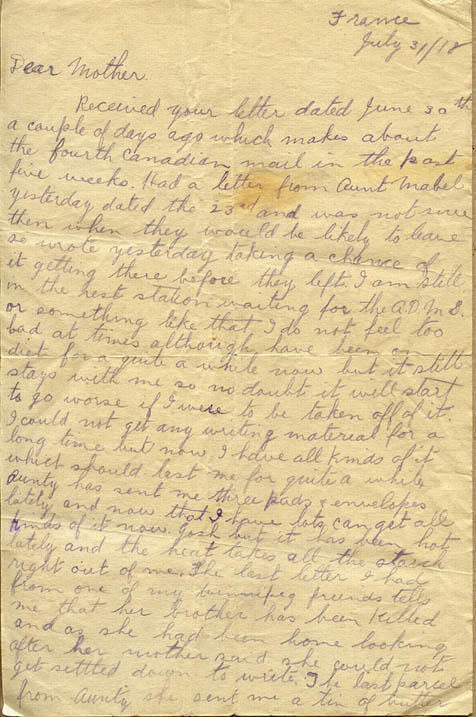 France
July 31/18
Dear Mother.
Received your letter dated June 30th
a couple of days ago which makes about
the fourth Canadian mail in the past
five weeks. Had a letter from Aunt Mabel
yesterday dated the 23rd and was not sure
then when they would be likely to leave
so wrote yesterday taking a chance of
it getting there before they left. I am still
in the rest station waiting for the A.D.M.S.
or something like that, I do not feel too
bad at times although have been on
diet for a quite a while now but it still
stays with me so no doubt it will start
to go worse if I were to be taken off of it
I could not get any writing material for a
long time but now I have all kinds of it
which should last me for quite a while
Aunty has sent me three pads & envelopes
lately and now that I have lots, can get all
kinds of it now. Gosh but it has been hot
lately and the heat takes all the starch
right out of me. The last letter I had
from one of my Winnipeg friends tells
me that her brother has been killed
and as she had been home looking
after her mother said she could not
get settled down to write. The last parcel
from Aunty she sent me a tin of butter